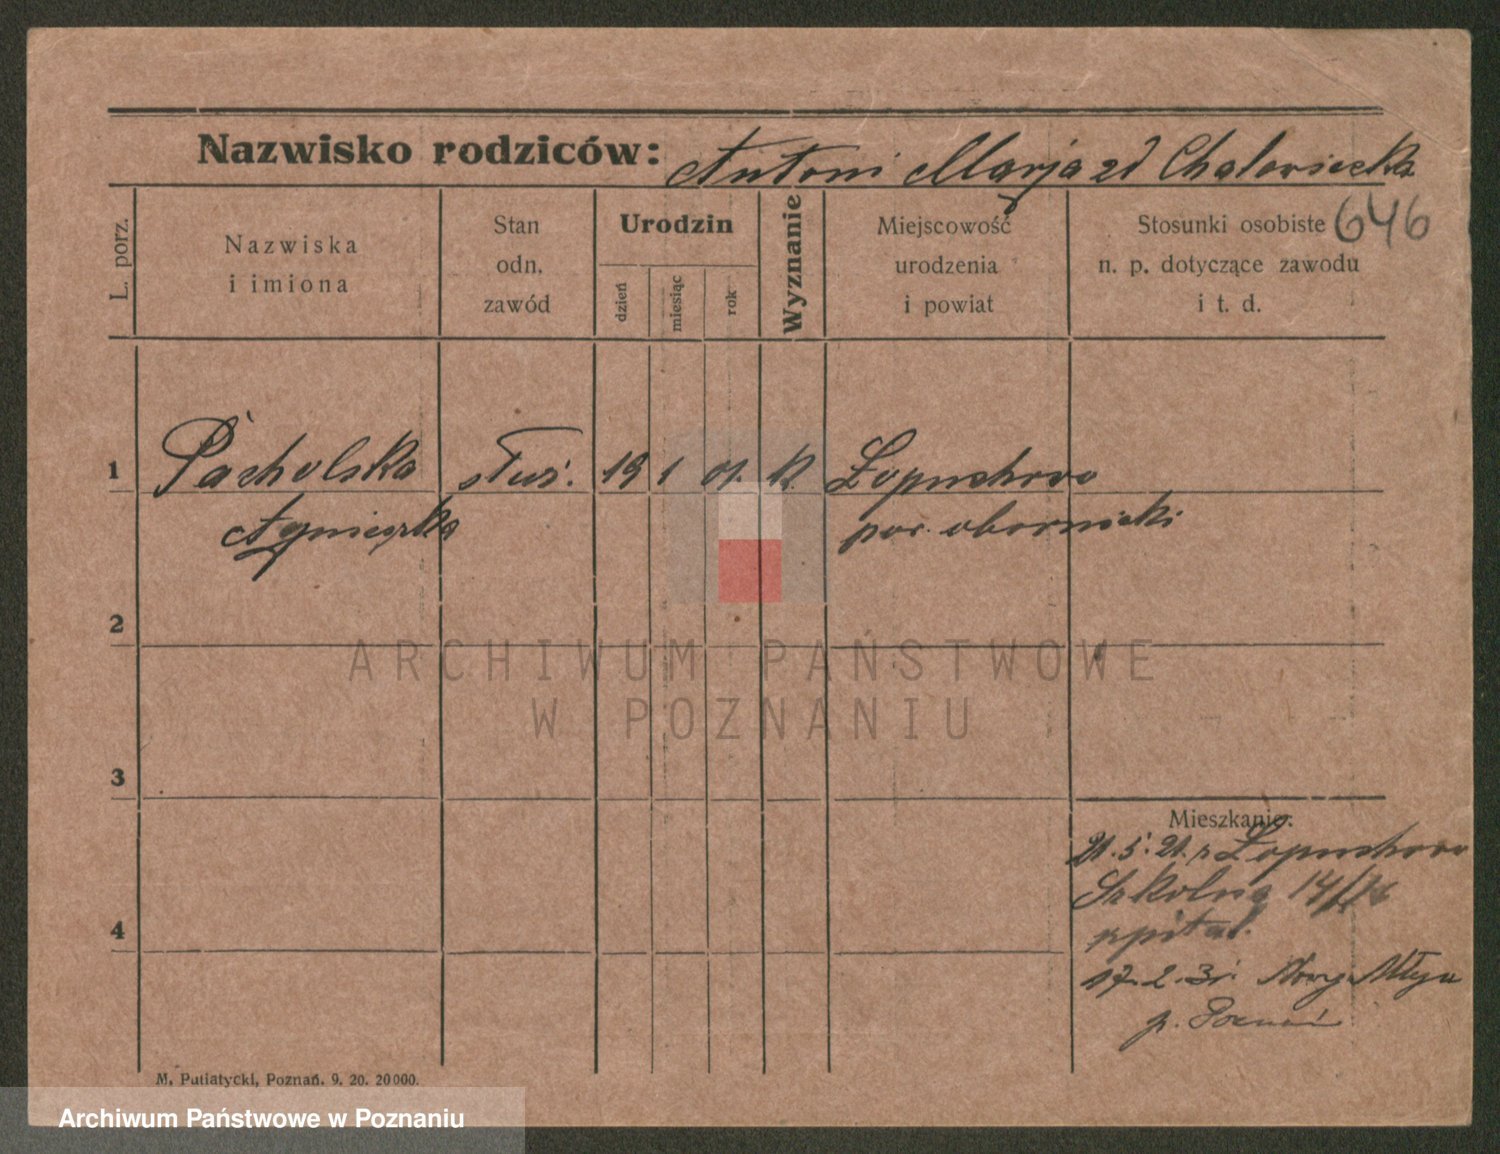 Nazwisko rodziców: Antoni Marja zd Chalewicka
646
L. porz.
Nazwiska
i imiona
Stan
odn.
zawód
Urodzin
dzień
miesiąc
rok
Wyznanie
Miejscowość
urodzenia
i powiat
Stosunki osobiste
n. p. dotyczące zawodu
i t. d.
1 Pacholska służ. 19 1 01. k. Łopuchowo
Agnieszka pow. obornicki
2
3
4
Mieszkanie:
21. 5. 21. z Łopuchowo
Szkolna 14/
szpital.
17. 2. 31. Nowy Młyn
p. Poznań
M. Putiatycki, Poznań. 9. 20. 20000.
ARCHIWUM PAŃSTWOWE
W POZNANIU
Archiwum Państwowe w Poznaniu